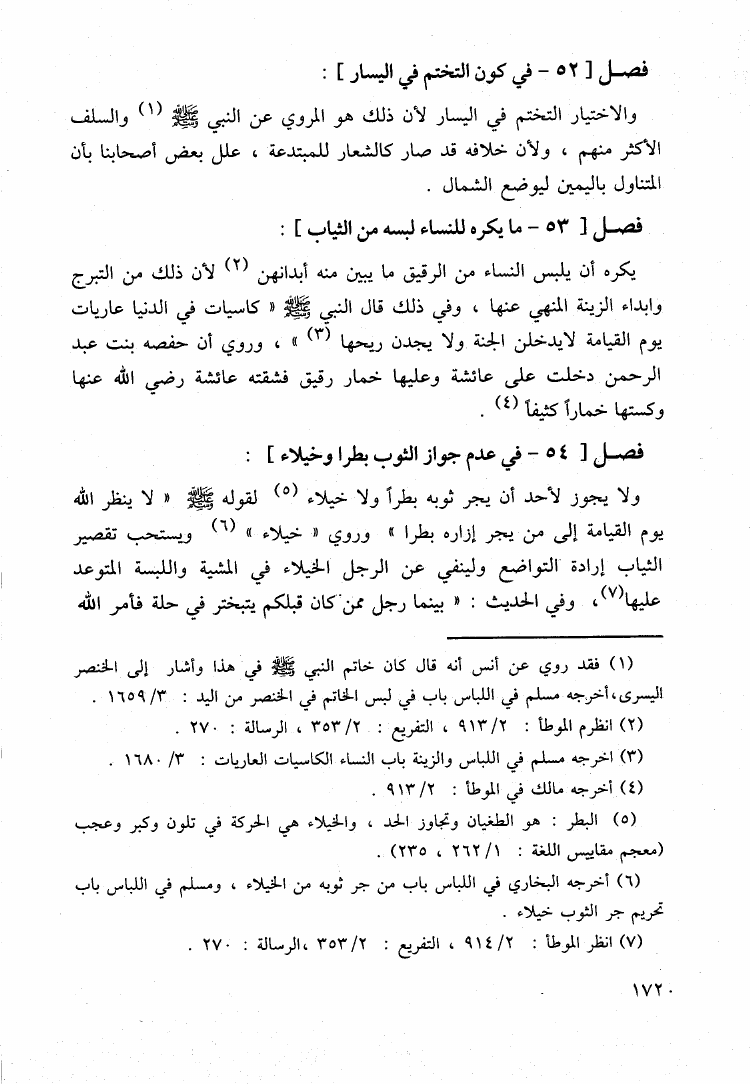 فصل [ ٥٢ – في كون التختم في اليسار ] :
والاختيار التختم في اليسار لأن ذلك هو المروي عن النبي ﷺ (١) والسلف
الأكثر منهم ، ولأن خلافه قد صار كالشعار للمبتدعة ، علل بعض أصحابنا بأن
المتناول باليمين ليوضع الشمال .
فصل [ ٥٣ – ما يكره للنساء لبسه من الثياب ] :
يكره أن يلبس النساء من الرقيق ما يبين منه أبدانهن (٢) لأن ذلك من التبرج
وابداء الزينة المنهي عنها ، وفي ذلك قال النبي ﷺ « كاسيات في الدنيا عاريات
يوم القيامة لايدخلن الجنة ولا يجدن ريحها (٣) » ، وروي أن حفصه بنت عبد
الرحمن دخلت على عائشة وعليها خمار رقيق فشقته عائشة رضي الله عنها
وكستها خماراً كثيفاً (٤) .
فصل [ ٥٤ – في عدم جواز الثوب بطرا وخيلاء ] :
ولا يجوز لأحد أن يجر ثوبه بطراً ولا خيلاء (٥) لقوله ﷺ « لا ينظر الله
يوم القيامة إلى من يجر إزاره بطرا » وروي « خيلاء » (٦) ويستحب تقصير
الثياب إرادة التواضع ولينفي عن الرجل الخيلاء في المشية واللبسة المتوعد
عليها(٧)، وفي الحديث : « بينما رجل ممن كان قبلكم يتبختر في حلة فأمر الله
(١) فقد روي عن أنس أنه قال كان خاتم النبي ﷺ في هذا وأشار إلى الخنصر
اليسرى،أخرجه مسلم في اللباس باب في لبس الخاتم في الخنصر من اليد : ١٦٥٩/٣ .
(٢) انظرم الموطأ : ٩١٣/٢ ، التفريع : ٣٥٣/٢ ، الرسالة : ٢٧٠ .
(٣) اخرجه مسلم في اللباس والزينة باب النساء الكاسيات العاريات : ١٦٨٠/٣ .
(٤) أخرجه مالك في الموطأ : ٩١٣/٢ .
(٥) البطر : هو الطغيان وتجاوز الحد ، والخيلاء هي الحركة في تلون وكبر وعجب
(معجم مقاييس اللغة : ٢٦٢/١ ، ٢٣٥) .
(٦) أخرجه البخاري في اللباس باب من جر ثوبه من الخيلاء ، ومسلم في اللباس باب
تحريم جر الثوب خيلاء .
(٧) انظر الموطأ : ٩١٤/٢ ، التفريع : ٣٥٣/٢ ،الرسالة : ٢٧٠ .
١٧٢٠